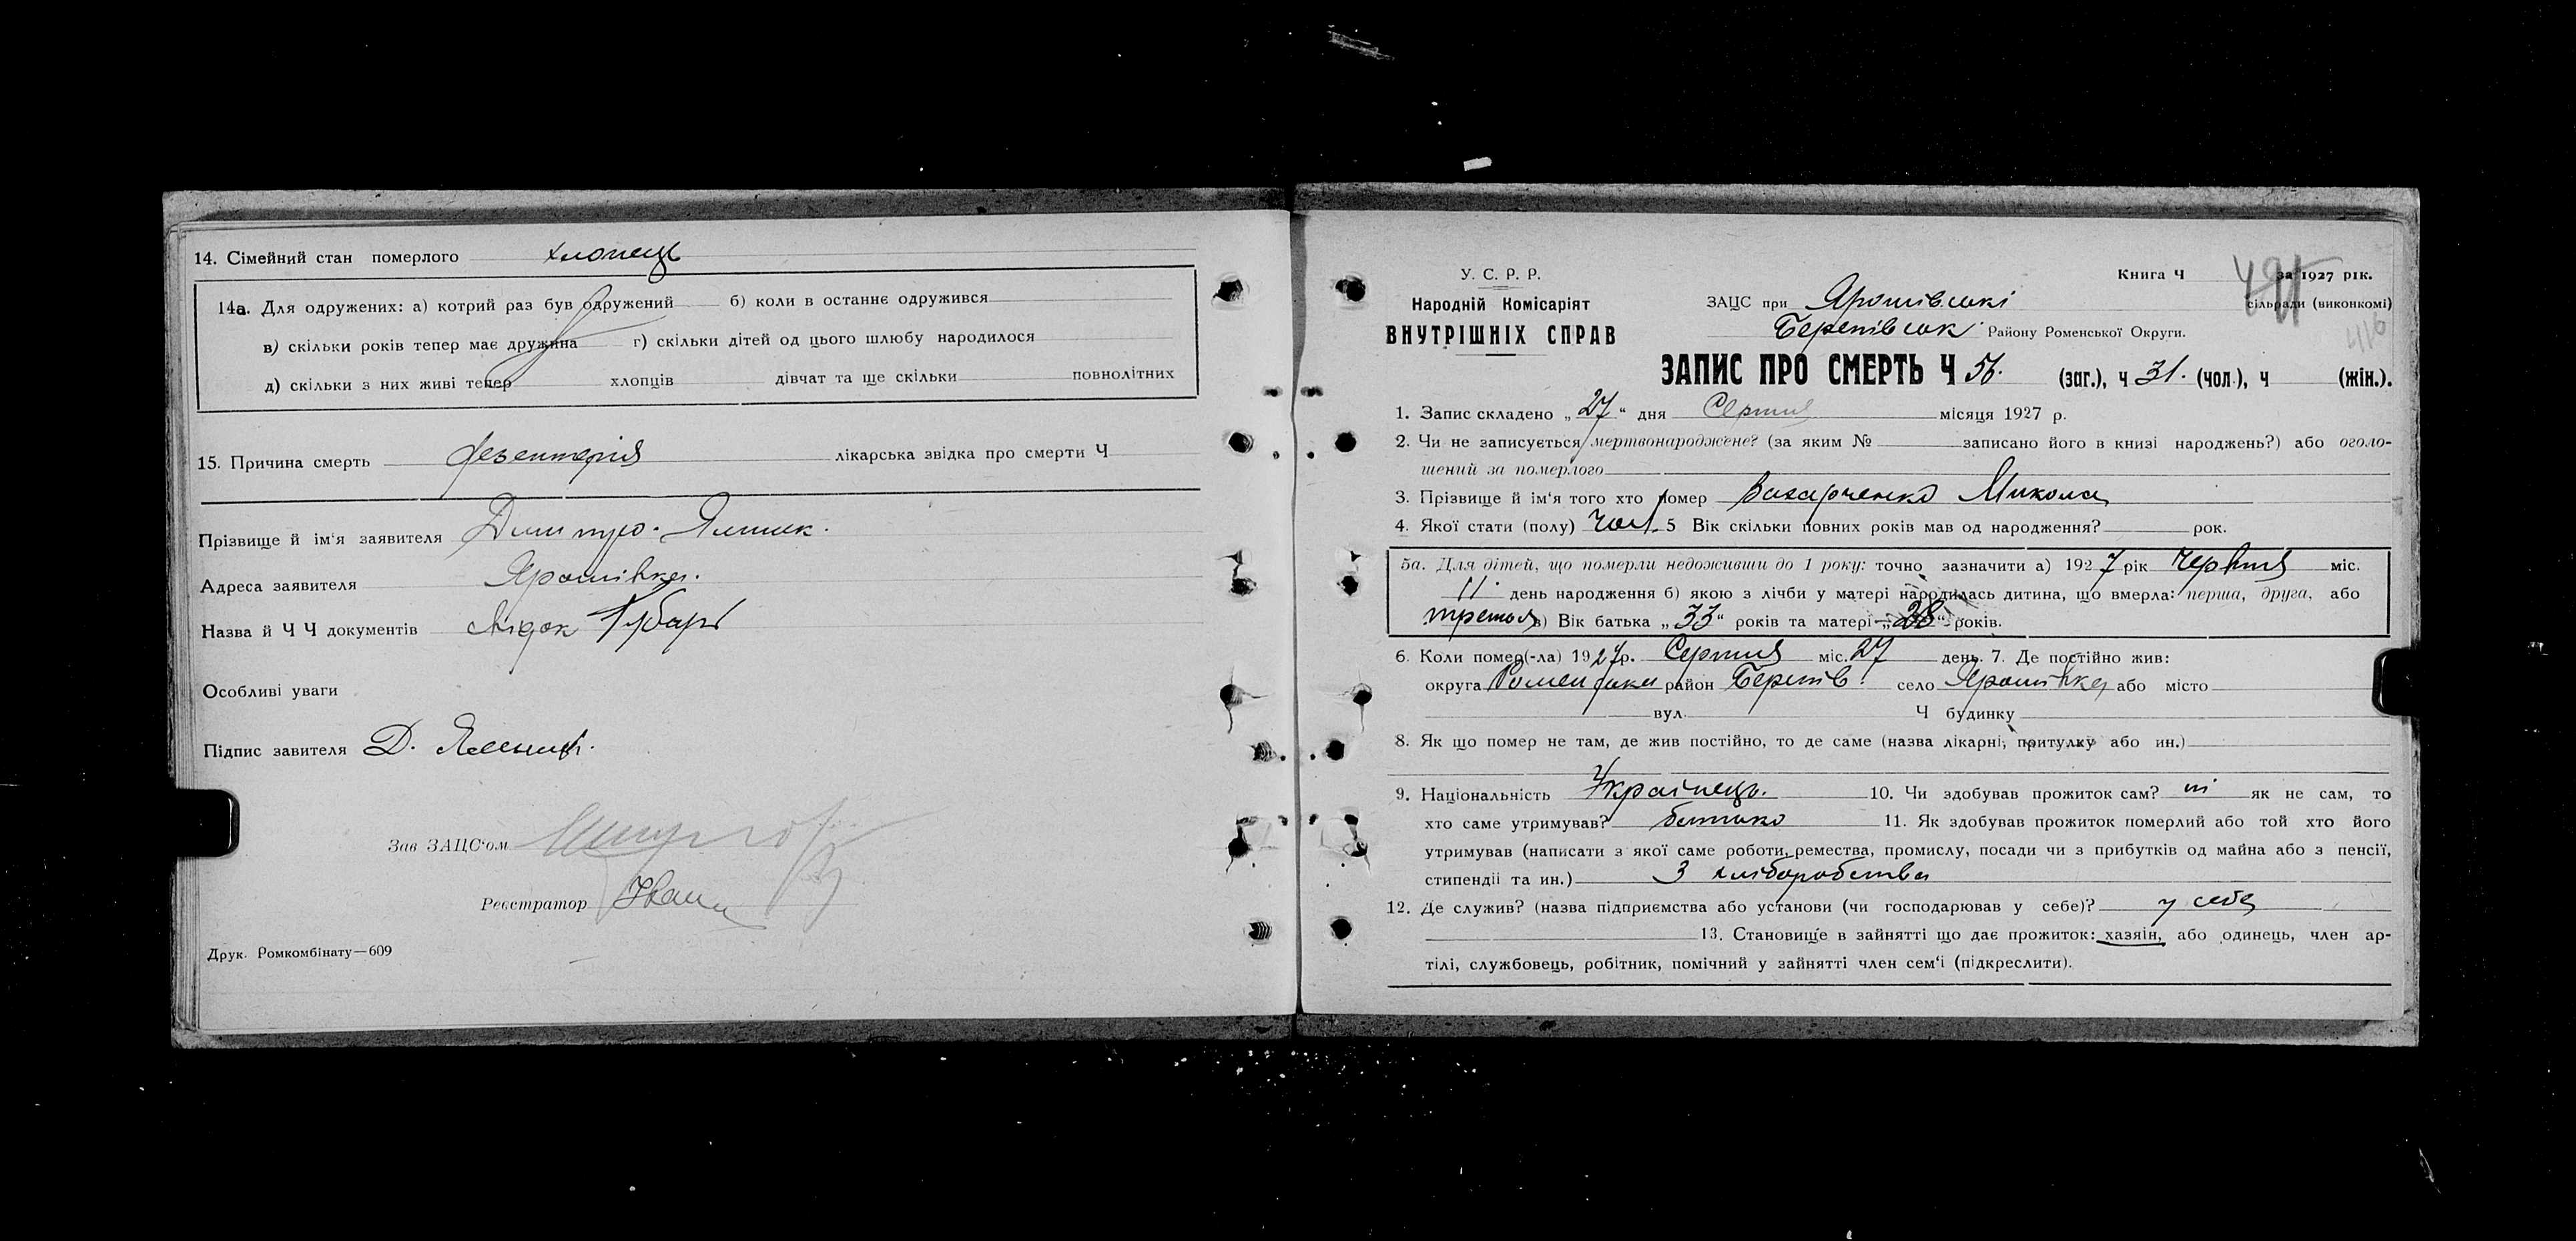 14. Сімейний стан померлого хлопець
14а. Для одружених: а) котрий раз був одружений б) коли в останнє одружився
в) скільки років тепер має дружина г) скільки дітей од цього шлюбу народилося
д) скільки з них живі тепер хлопців дівчат та ще скільки повнолітних
15. Причина смерть дезентерія лікарська звідка про смерти Ч
Прізвище й ім'я заявителя Дмитро
Адреса заявителя Ярошівка.
Назва й Ч Ч документів
Особливі уваги
Підпис завителя Д.
Зав ЗАЦС'ом
Реєстратор
Друк. Ромкомбінату—609
У. С. Р. Р.
Народній Комісаріят
ВНУТРІШНІХ СПРАВ
Книга Ч за 1927 рік.
ЗАЦС при Ярошівські сільради (виконкомі)
Берепівськ Району Роменської Округи.
416
ЗАПИС ПРО СМЕРТЬ Ч 56. (заг.), ч 31. (чол.), ч (жін.).
1. Запис складено „27" дня Серпня місяця 1927 р.
2. Чи не записується мертвонароджене? (за яким № записано його в книзі народжень?) або оголо-
шений за померлого
3. Прізвище й ім'я того хто помер Захарченко Микола
4. Якої стати (полу) чол. 5 Вік скільки повних років мав од народження? рок.
5а. Для дітей, що померли недоживши до 1 року: точно зазначити а) 1927 рік Червня міс.
11 день народження б) якою з лічби у матері народилась дитина, що вмерла: перша, друга, або
третья в) Вік батька „33" років та матері „28" років.
6. Коли помер(-ла) 1927р. Серпня міс. 27 день. 7. Де постійно жив:
округа Роменська район Берепів. село Ярошівка або місто
вул. Ч будинку
8. Як що помер не там, де жив постійно, то де саме (назва лікарні, притулку або ин.)
9. Національність Українець. 10. Чи здобував прожиток сам? ні як не сам, то
хто саме утримував? батько 11. Як здобував прожиток померлий або той хто його
утримував (написати з якої саме роботи, ремества, промислу, посади чи з прибутків од майна або з пенсії,
стипендії та ин.) З хліборобства
12. Де служив? (назва підприємства або установи (чи господарював у себе)? у себе
13. Становище в зайнятті що дає прожиток: хазяін, або одинець, член ар-
тілі, службовець, робітник, помічний у зайнятті член сем'і (підкреслити).